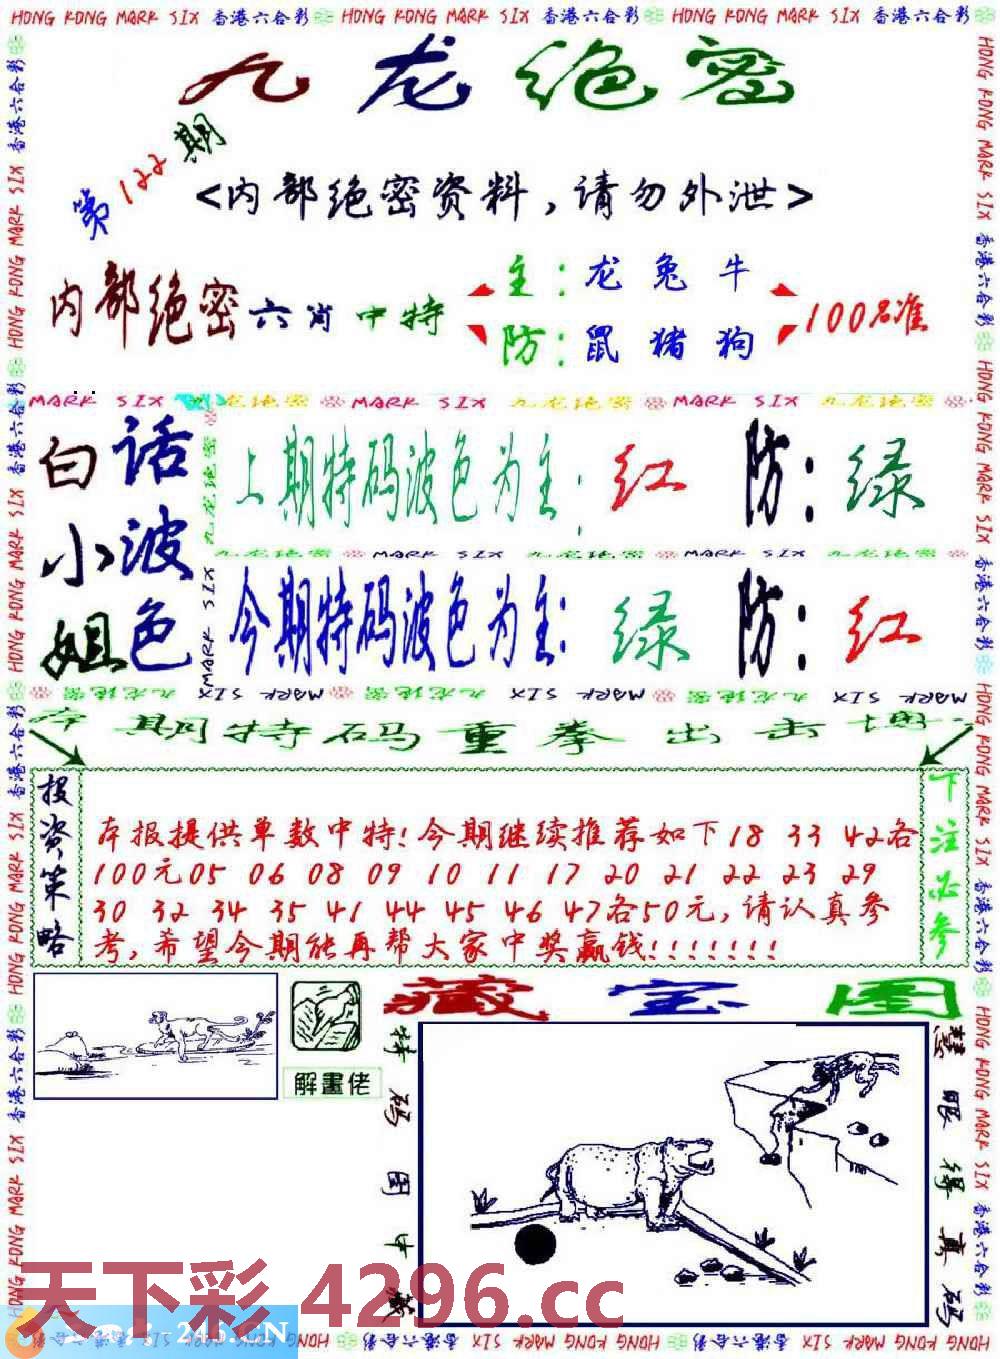 HONG KONG MARK SIX 香港六合彩 HONG KONG MARK SIX 香港六合彩 HONG KONG MARK SIX 香港六合彩
九龙绝密
第122期
<内部绝密资料,请勿外泄>
内部绝密六肖中特
主:龙兔牛
防:鼠猪狗
100%准
MARK SIX 九龙绝密 MARK SIX 九龙绝密 MARK SIX 九龙绝密
白小姐
话波色
上期特码波色为主:红 防:绿
九龙绝密 MARK SIX 九龙绝密 MARK SIX 九龙绝密
今期特码波色为主:绿 防:红
本期特码重拳出击
投资策略
本报提供单数中特!今期继续推荐如下18 33 42各
100元05 06 08 09 10 11 17 20 21 22 23 29
30 32 34 35 41 44 45 46 47各50元,请认真参
考,希望今期能再帮大家中奖赢钱!!!!!!!
下注必参
解畫佬
藏宝图
特码图中藏
慧眼得真码
天下彩 4296.cc
246.CN